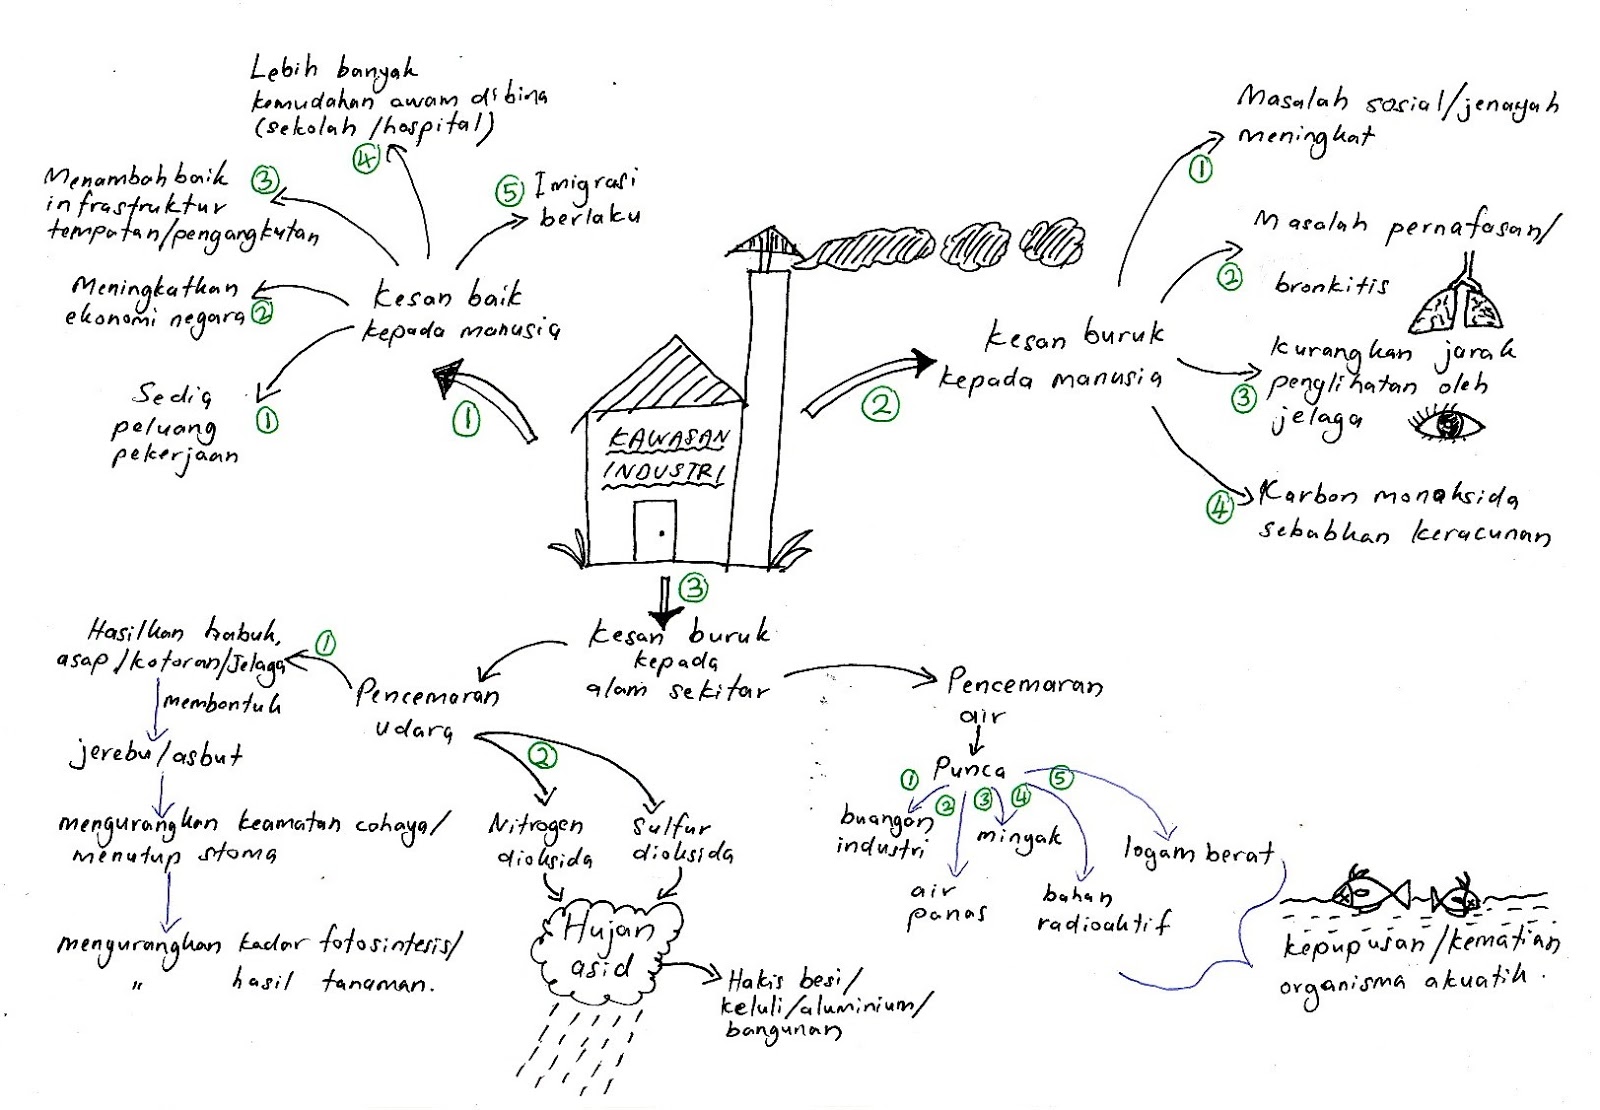 KAWASAN
INDUSTRI
①
Kesan baik
kepada manusia
①
Sedia
peluang
pekerjaan
Meningkatkan
ekonomi negara ②
Menambah baik ③
infrastruktur
tempatan/pengangkutan
Lebih banyak
kemudahan awam dibina
(sekolah/hospital)
④
⑤ Imigrasi
berlaku
②
Kesan buruk
kepada manusia
Masalah sosial/jenayah
meningkat
①
Masalah pernafasan/
② bronkitis
Kurangkan jarak
③ penglihatan oleh
jelaga
④ Karbon monoksida
sebabkan keracunan
③
Kesan buruk
kepada
alam sekitar
Pencemaran
udara
①
Hasilkan habuk,
asap/kotoran/jelaga
membentuk
jerebu/asbut
mengurangkan keamatan cahaya/
menutup stoma
mengurangkan kadar fotosintesis/
" hasil tanaman.
②
Nitrogen
dioksida
Sulfur
dioksida
Hujan
asid
Hakis besi/
keluli/aluminium/
bangunan
Pencemaran
air
Punca
① ② ③ ④ ⑤
buangan
industri
air
panas
minyak
bahan
radioaktif
logam berat
kepupusan/kematian
organisma akuatik.